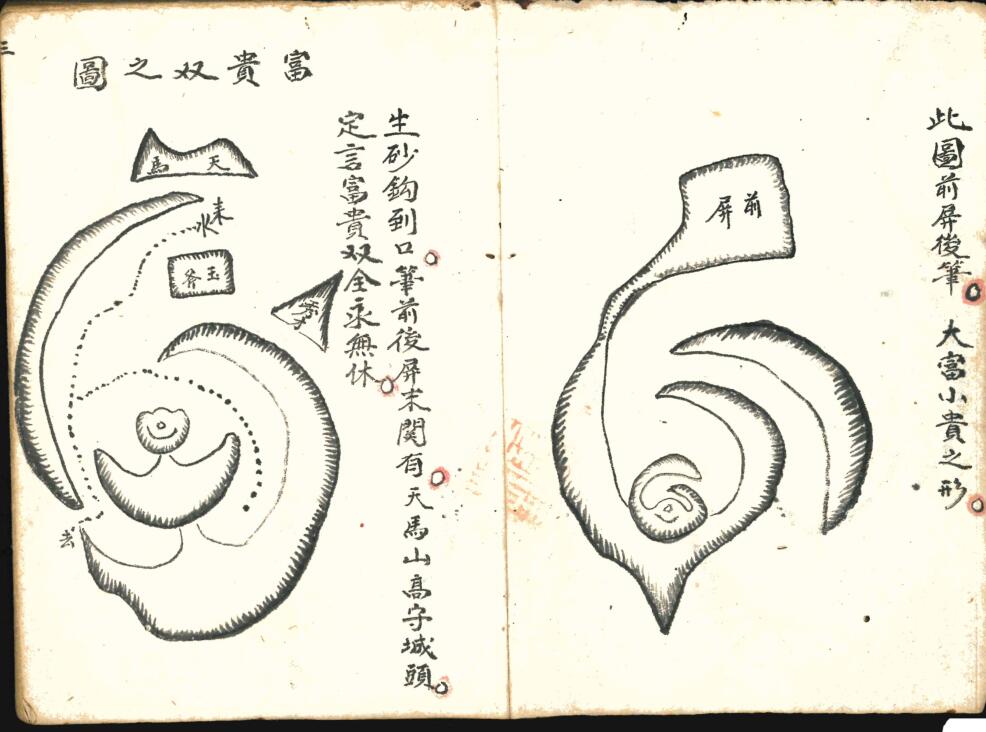 此圖前屏後筆 大富小貴之形
前屏
生砂鈎到口筆前後屏末関有天馬山高字城頭
定言富貴双全永無休
富貴双之圖
天馬
来水
玉斧
去
三